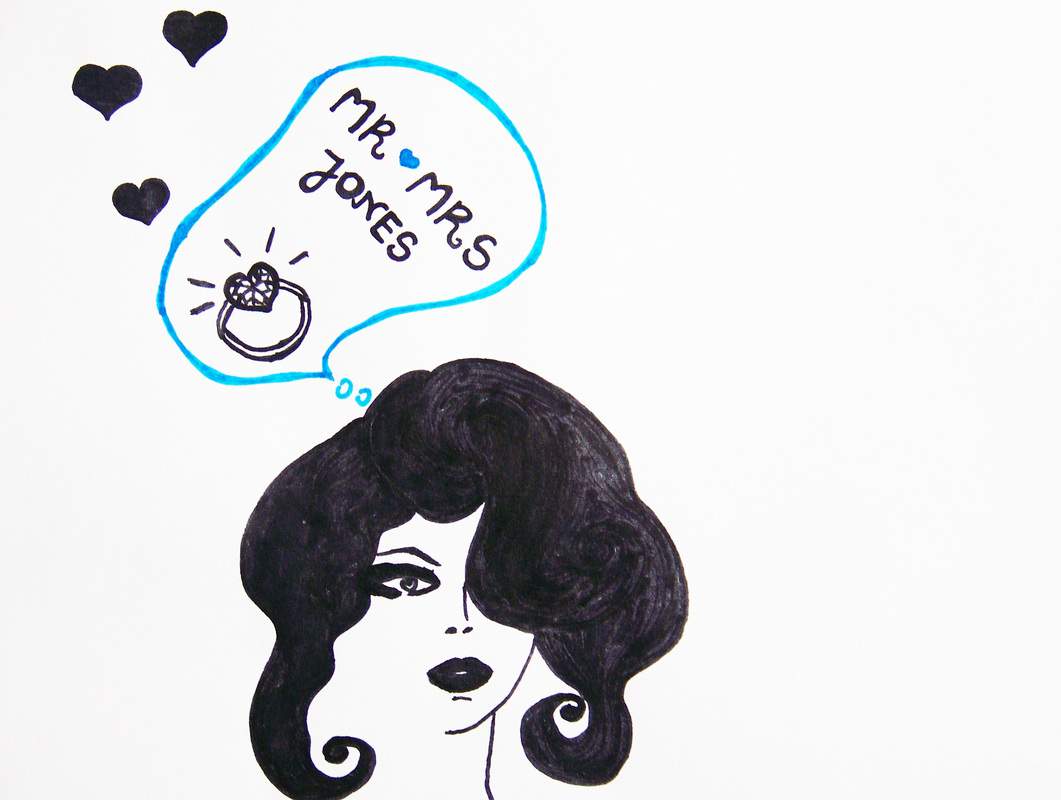 MR MRS
JONES